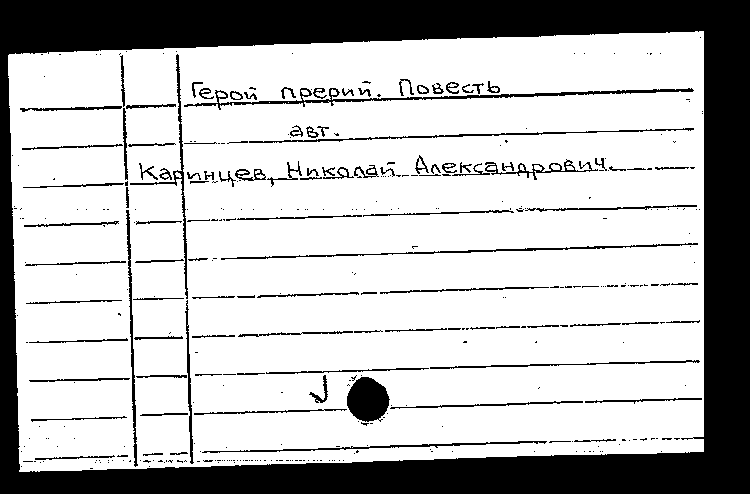 Герой прерий. Повесть
авт.
Каринцев, Николай Александрович.